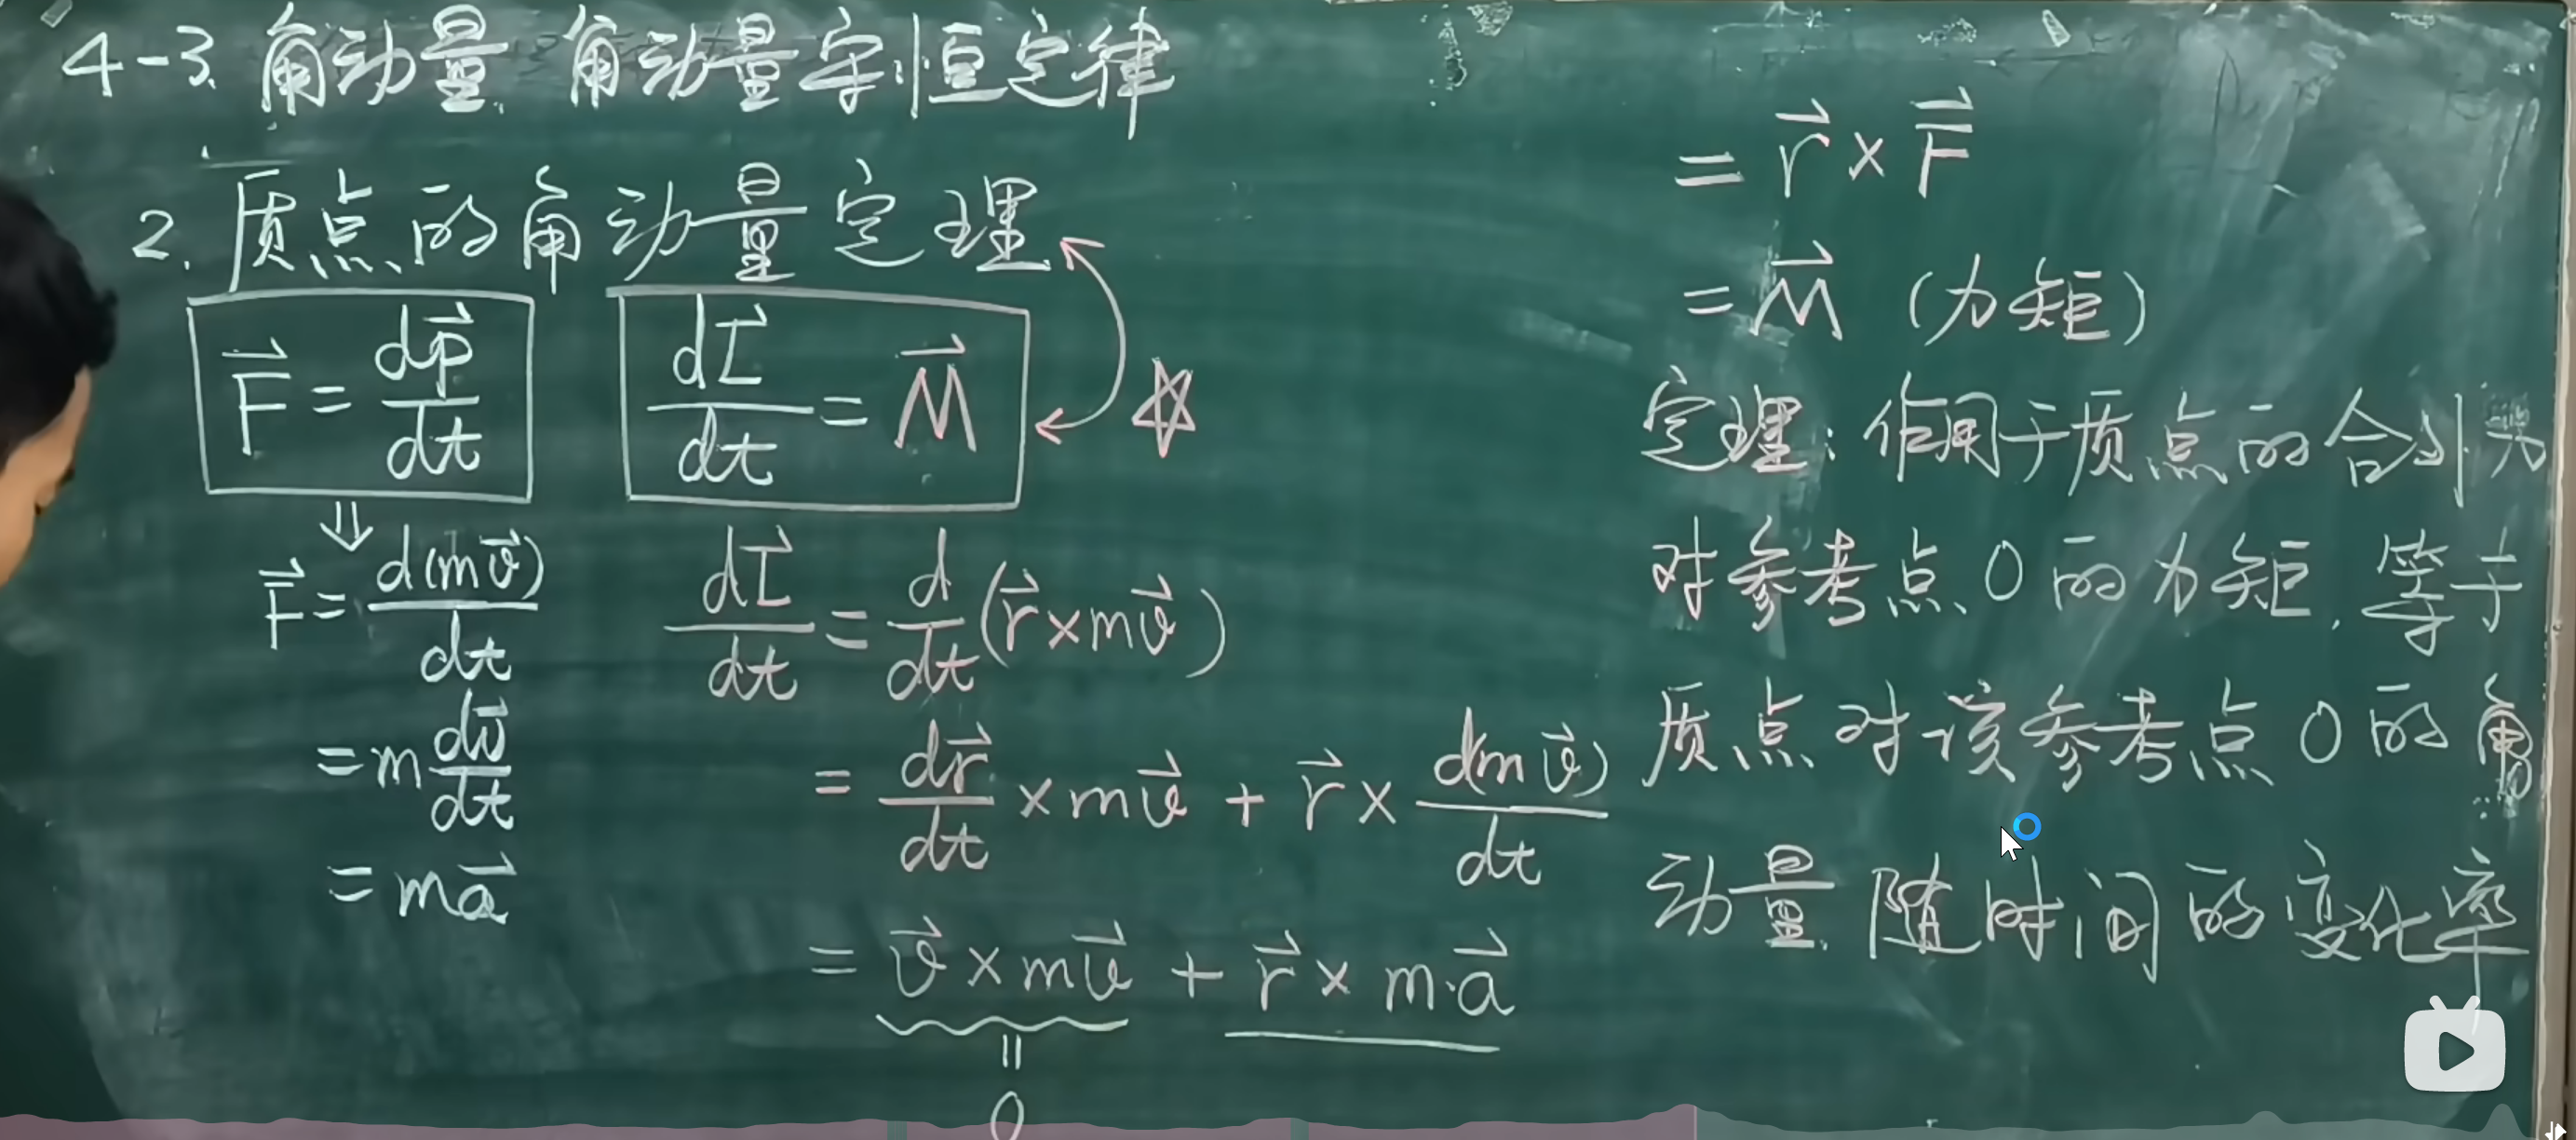 4-3. 角动量. 角动量守恒定律
2. 质点的角动量定理
F⃗ = dp⃗/dt
dL⃗/dt = M⃗ ☆
⇓
F⃗ = d(mv⃗)/dt
= m dv⃗/dt
= ma⃗
dL⃗/dt = d/dt (r⃗ × mv⃗)
= dr⃗/dt × mv⃗ + r⃗ × d(mv⃗)/dt
= v⃗ × mv⃗ + r⃗ × m·a⃗
=
0
= r⃗ × F⃗
= M⃗ (力矩)
定理: 作用于质点的合外
对参考点O的力矩, 等于
质点对该参考点O的角
动量随时间的变化率